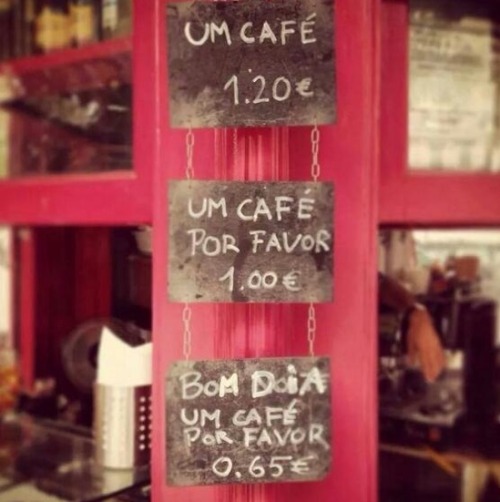 UM CAFÉ
1.20€
UM CAFÉ
POR FAVOR
1.00€
BOM DOiA
UM CAFÉ
POR FAVOR
0.65€